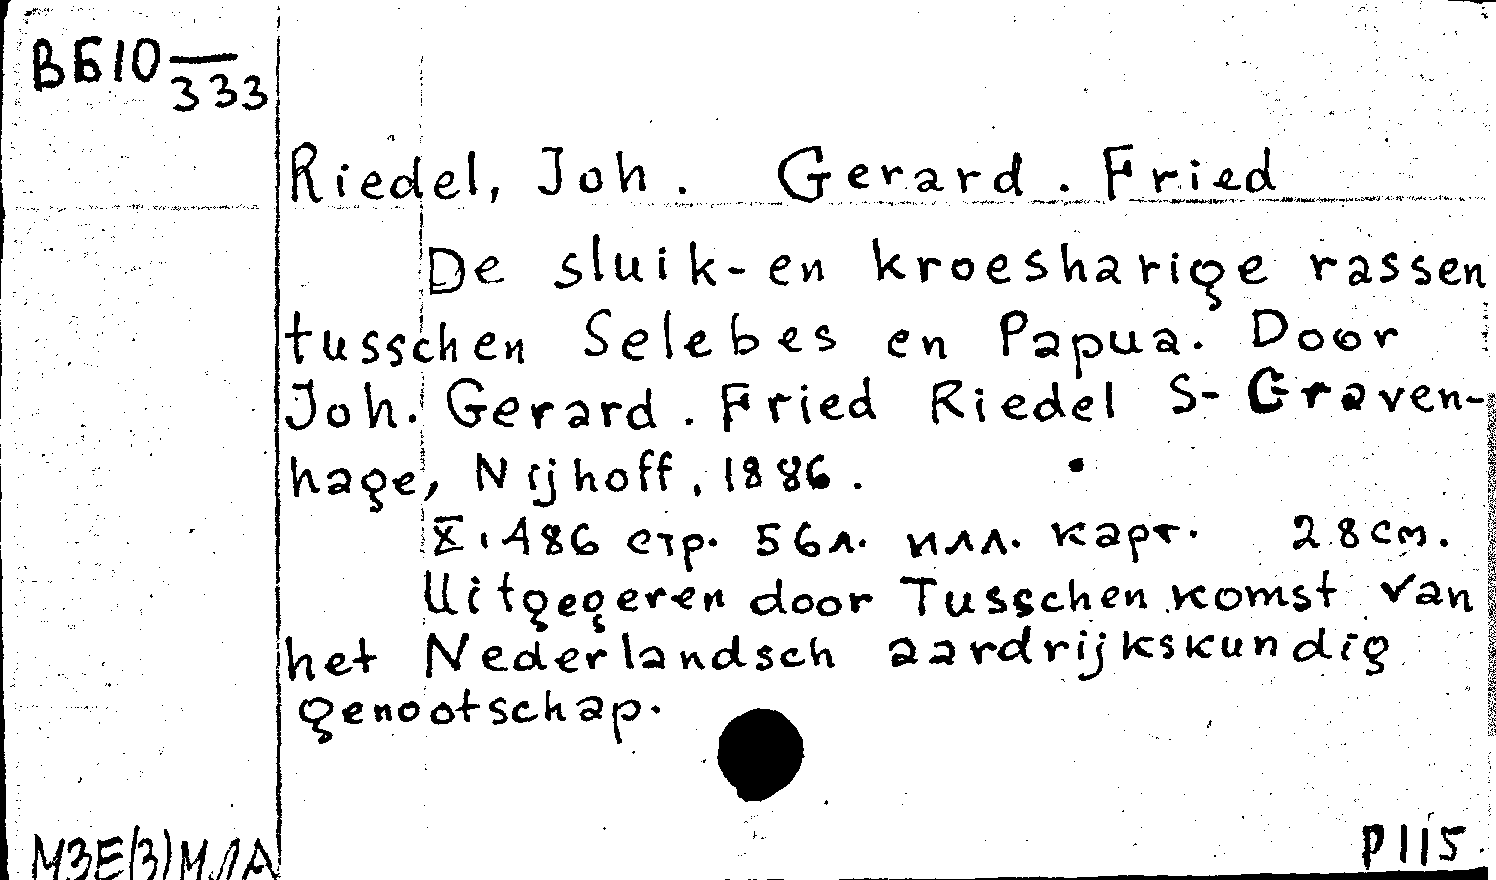 ВБ10—
333
Riedel, Joh. Gerard. Fried
De sluik-en kroesharige rassen
tusschen Selebes en Papua. Door
Joh. Gerard. Fried Riedel S-Graven-
hage, Nijhoff, 1886.
X, 486 стр. 56л. илл. карт. 28см.
Uitgegeren door Tusschen komst van
het Nederlandsch aardrijkskundig
genootschap.
МЗЕ(3)МЛА
P115